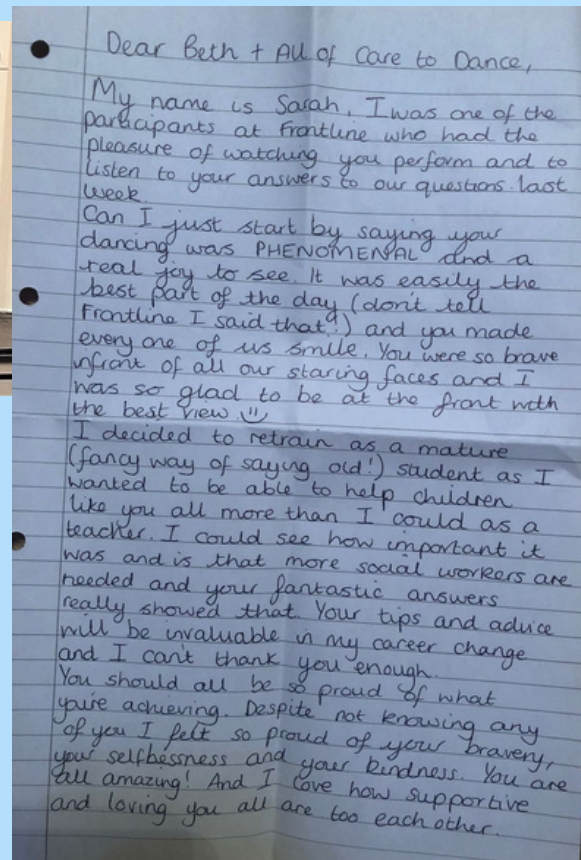 Dear Beth + All of Care to Dance,
My name is Sarah, I was one of the
participants at Frontline who had the
pleasure of watching you perform and to
listen to your answers to our questions last
week.
Can I just start by saying your
dancing was PHENOMENAL and a
real joy to see. It was easily the
best part of the day (don't tell
Frontline I said that!) and you made
every one of us smile. You were so brave
infront of all our staring faces and I
was so glad to be at the front with
the best view
I decided to retrain as a mature
(fancy way of saying old!) student as I
wanted to be able to help children
like you all more than I could as a
teacher. I could see how important it
was and is that more social workers are
needed and your fantastic answers
really showed that. Your tips and advice
will be invaluable in my career change
and I can't thank you enough.
You should all be so proud of what
you're achieving. Despite not knowing any
of you I felt so proud of your bravery,
your selflessness and your kindness. You are
all amazing! And I love how supportive
and loving you all are too each other.